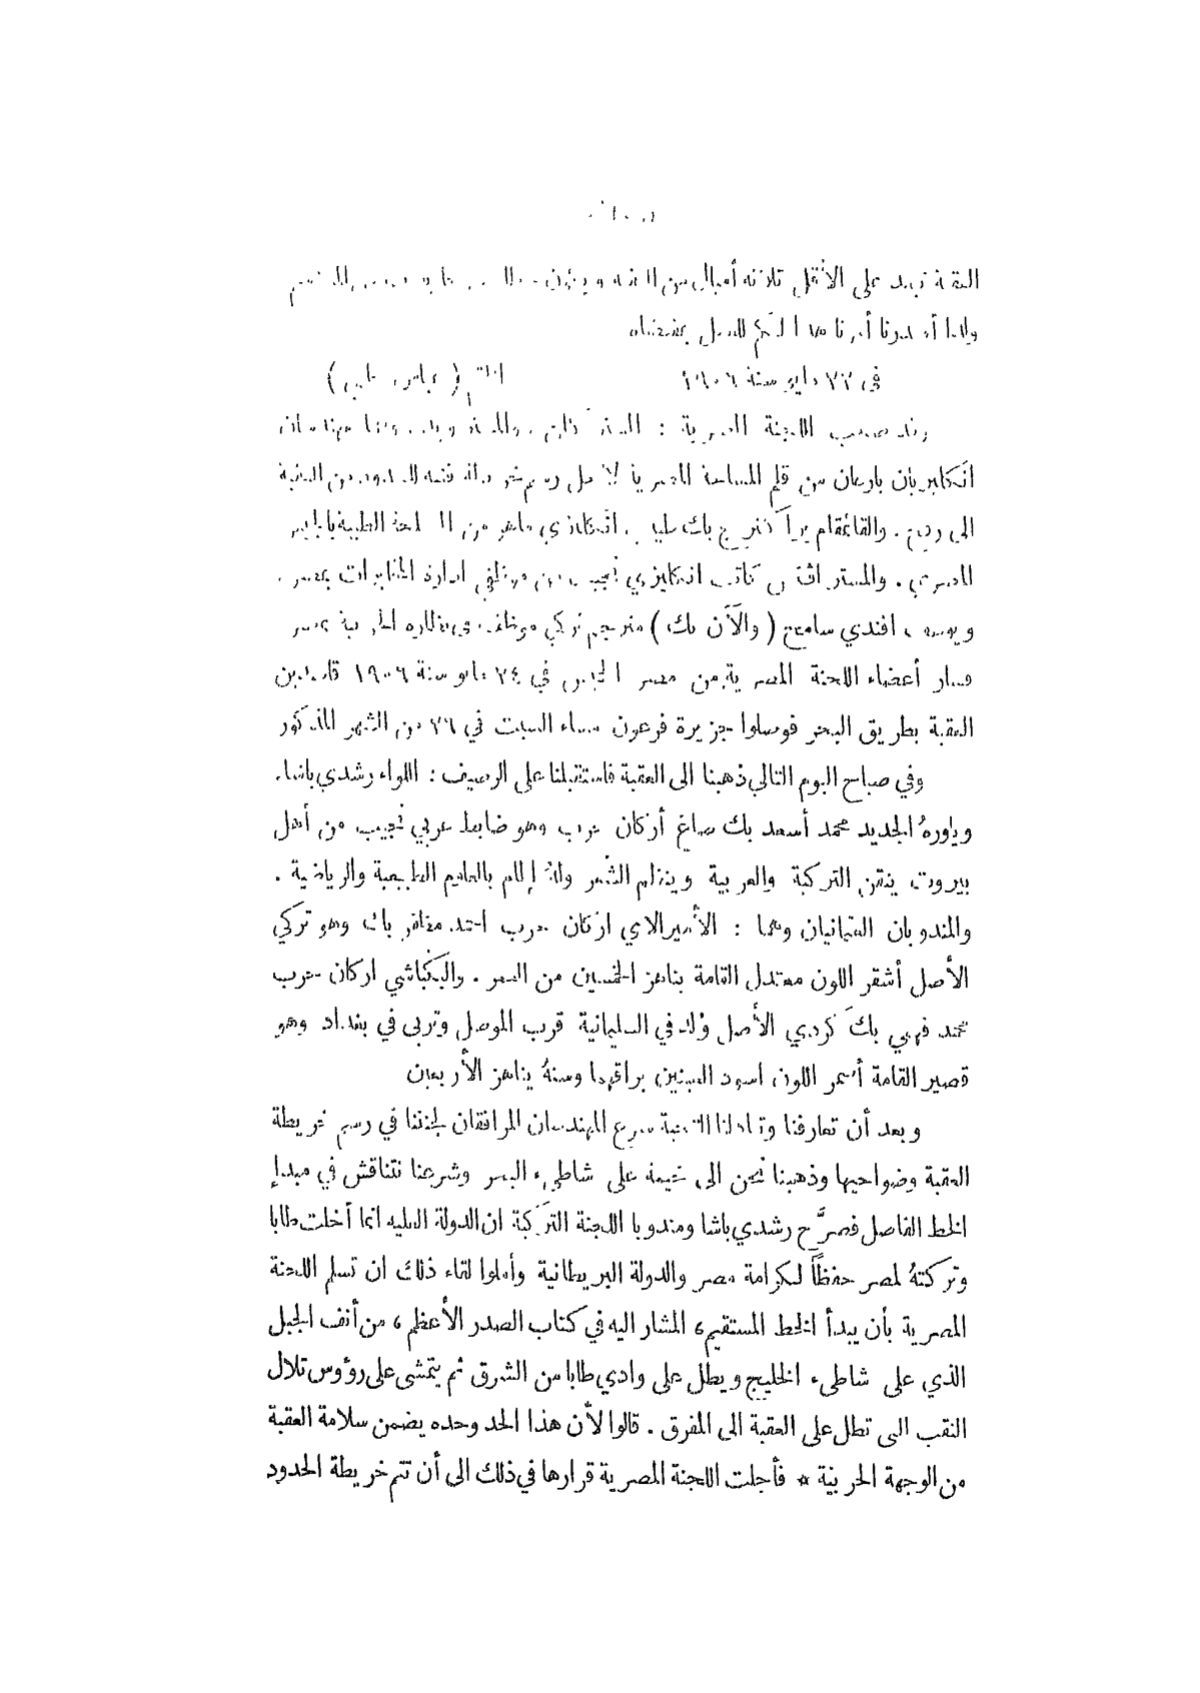 العقبة تبعد على الأقل ثلاثة أميال من
ولذا أصدرنا أمرنا هذا اليكم للعمل بمقتضاه
في ٢٣ مايو سنة ١٩٠٦ الختم (عباس حلمي)
وقد صحب اللجنة المصرية : المستر
انكليزيان بارعان من قلم المساحة المصرية لأجل رسم خريطة الحدود من العقبة
الى رفح . والقائمقام بك طبيب انكليزي ماهر من المصلحة الطبية بالجيش
المصري . والمستر كاتب انكليزي نجيب من موظفي ادارة المخابرات بمصر .
ويوسف افندي سامح (والآن بك) مترجم تركي موظف في نظارة الحربية بمصر
فسار أعضاء اللجنة المصرية من مصر الخميس في ٢٤ مايو سنة ١٩٠٦ قاصدين
العقبة بطريق البحر فوصلوا جزيرة فرعون مساء السبت في ٢٦ من الشهر المذكور
وفي صباح اليوم التالي ذهبنا الى العقبة فاستقبلنا على الرصيف : اللواء رشدي باشا .
وياوره الجديد محمد أسعد بك صاغ أركان حرب وهو ضابط عربي نجيب من أهل
بيروت يتقن التركية والعربية وينظم الشعر وله إلمام بالعلوم الطبيعية والرياضية .
والمندوبان العثمانيان وهما : الأميرالاي اركان حرب احمد مظفر بك وهو تركي
الأصل أشقر اللون معتدل القامة يناهز الخمسين من العمر . والبكباشي اركان حرب
محمد فهمي بك كردي الأصل وُلد في السليمانية قرب الموصل وتربى في بغداد وهو
قصير القامة أسمر اللون اسود العينين براقهما وسنهُ يناهز الأربعين
وبعد أن تعارفنا وتبادلنا التحية شرع المهندسان المرافقان لجنتنا في رسم خريطة
العقبة وضواحيها وذهبنا نحن الى خيمة على شاطىء البحر وشرعنا نتناقش في مبدإ
الخط الفاصل فصرَّح رشدي باشا ومندوبا اللجنة التركية ان الدولة العليه انما أخلت طابا
وتركتهُ لمصر حفظاً لكرامة مصر والدولة البريطانية وأملوا لقاء ذلك ان تسلم اللجنة
المصرية بأن يبدأ الخط المستقيم، المشار اليه في كتاب الصدر الأعظم ، من أنف الجبل
الذي على شاطىء الخليج ويطل على وادي طابا من الشرق ثم يتمشى على رؤوس تلال
النقب التي تطل على العقبة الى المفرق . قالوا لأن هذا الحد وحده يضمن سلامة العقبة
من الوجهة الحربية * فأجلت اللجنة المصرية قرارها في ذلك الى أن تتم خريطة الحدود